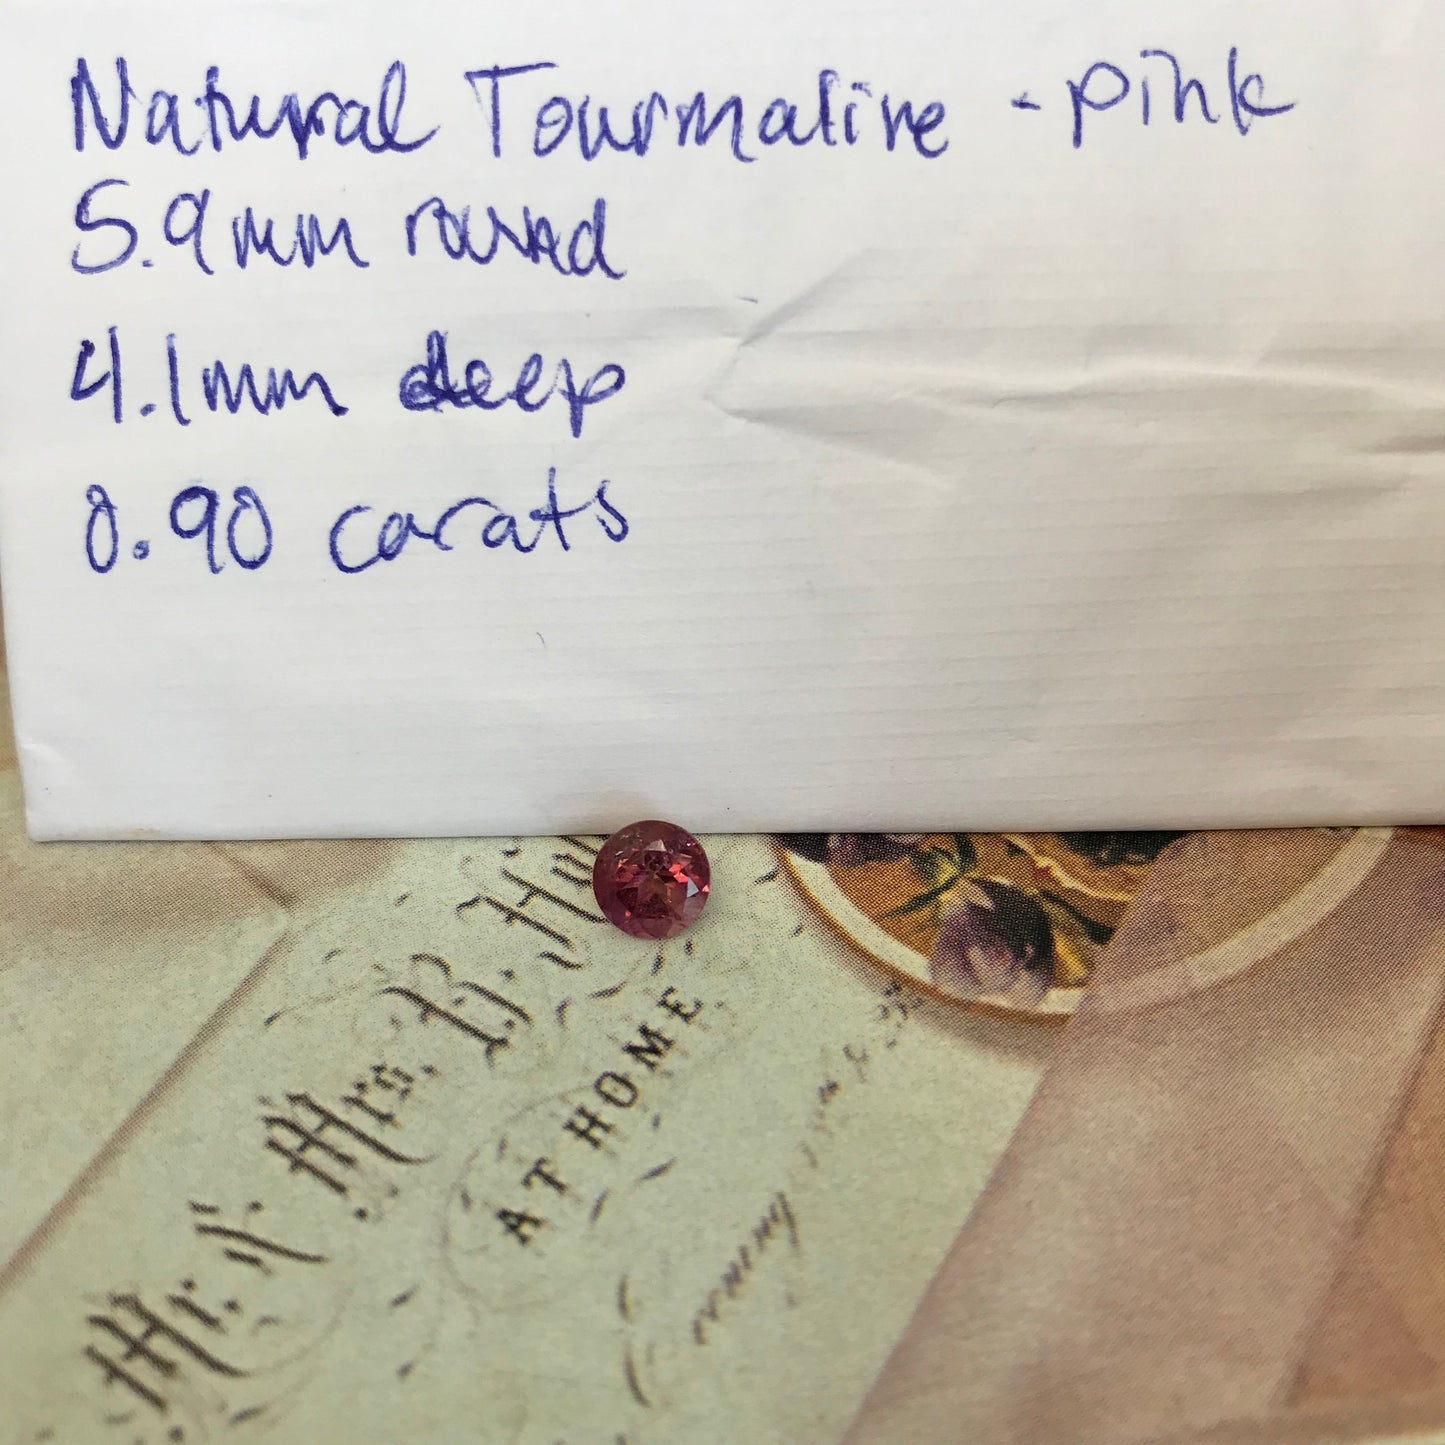 Natural Tourmaline - pink
5.9mm round
4.1mm deep
0.90 carats
Mr. & Mrs. B.
AT HOME